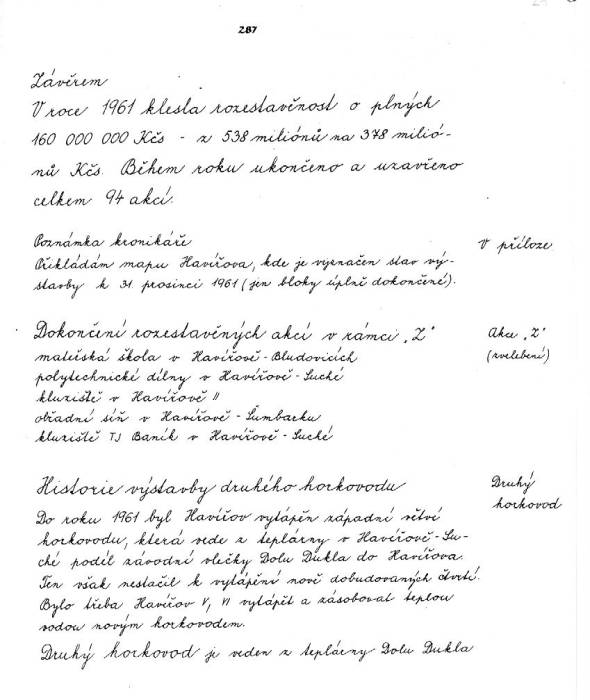 287
Závěrem
V roce 1961 klesla rozestavěnost o plných
160 000 000 Kčs - z 538 miliónů na 378 milió-
nů Kčs. Během roku ukončeno a uzavřeno
celkem 94 akcí.
Poznámka kronikáře
V příloze
Přikládám mapu Havířova, kde je vyznačen stav vý-
stavby k 31. prosinci 1961 (jen bloky úplně dokončené).
Dokončení rozestavěných akcí v rámci „Z"
Akce „Z"
mateřská škola v Havířově-Bludovicích
(zvelebení)
polytechnické dílny v Havířově-Suché
kluziště v Havířově II
obřadní síň v Havířově-Šumbarku
kluziště TJ Baník v Havířově-Suché
Historie výstavby druhého horkovodu
Druhý
horkovod
Do roku 1961 byl Havířov vytápěn západní větví
horkovodu, která vede z teplárny v Havířově-Su-
ché podél závodní vlečky Dolu Dukla do Havířova.
Ten však nestačil k vytápění nově dobudovaných čtvrtí.
Bylo třeba Havířov V, VI vytápět a zásobovat teplou
vodou novým horkovodem.
Druhý horkovod je veden z teplárny Dolu Dukla